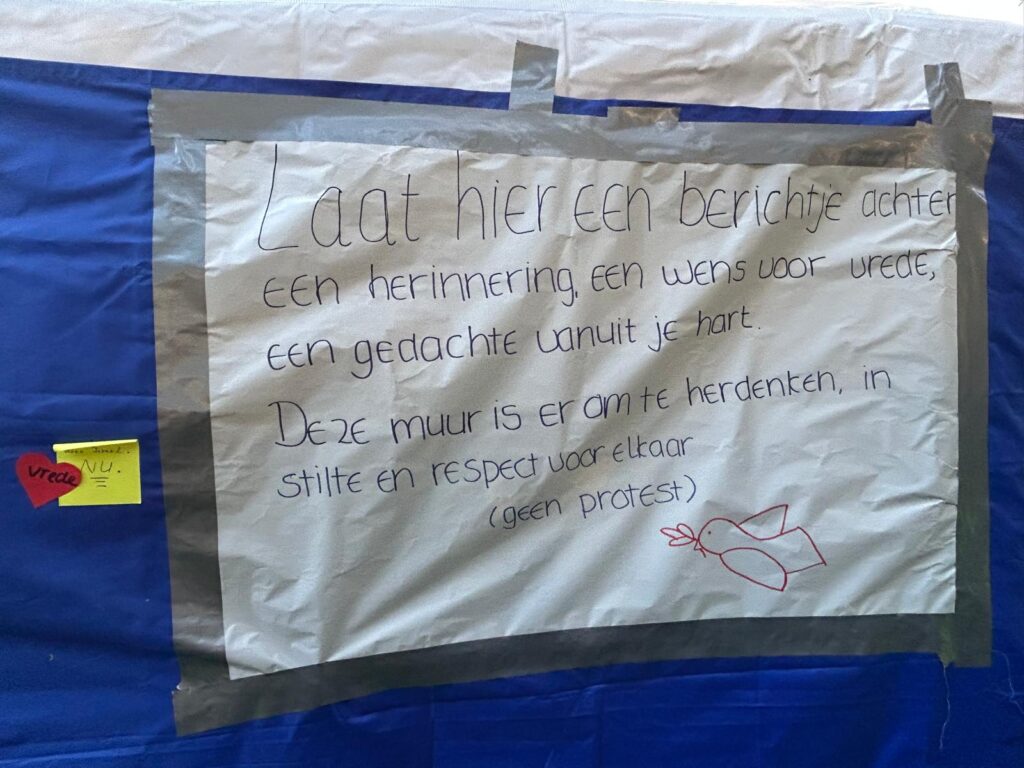 Laat hier een berichtje achter
een herinnering, een wens voor vrede,
een gedachte vanuit je hart.
Deze muur is er om te herdenken, in
stilte en respect voor elkaar
(geen protest)
vrede
NU.